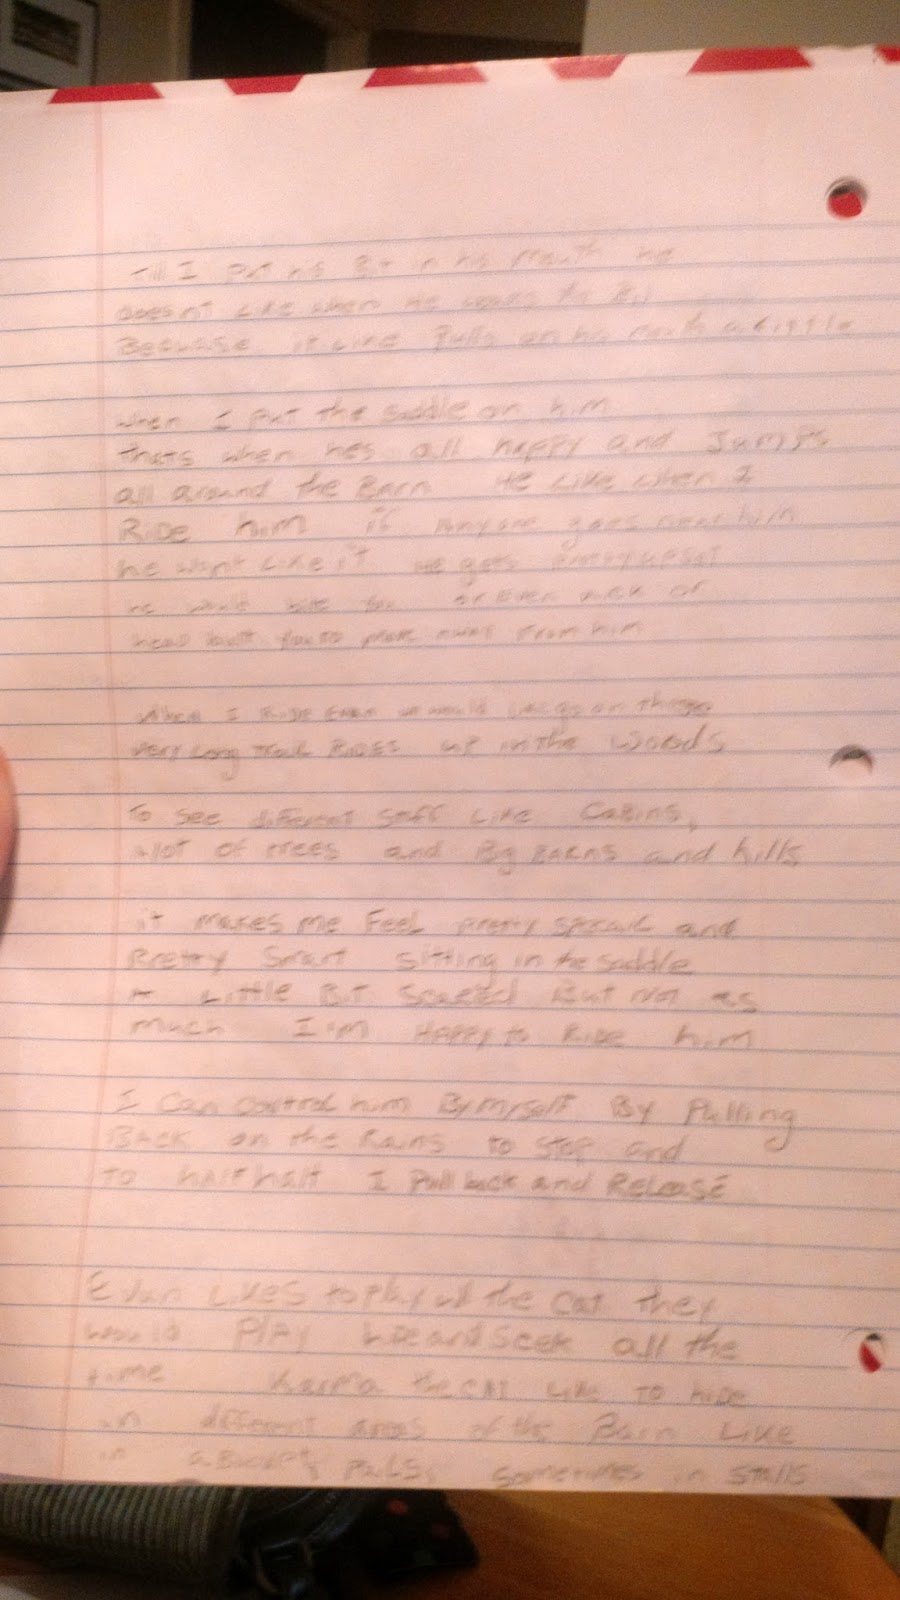 till I put his Bit in his mouth he
doesnt Like when He wears the Bit
Because it Like Pulls on his mouth a Little
when I put the saddle on him
thats when hes all happy and Jumps
all around the Barn He Like when I
RiDe him if Anyone goes near him
he wont Like it He gets Pretty upset
he would bite you or even kick or
head butt you to move away from him
When I Ride Evan we would go on these
very Long Trail RiDes up in the Woods
To see different stuff Like CaBins,
alot of trees and Big BaRns and hills
it makes me Feel pretty and
Pretty Smart sitting in the saddle
A Little Bit Scared But not as
much I'm HAppy to RiDe him
I can control him By myself By Pulling
BAck on the Rains to stop and
to half halt I Pull back and Release
Evan Likes to play w/ the cat they
would PlAy hide and Seek all the
time Karma the cat Like To hiDe
in different areas of the Barn Like
in Pails, sometimes in stalls